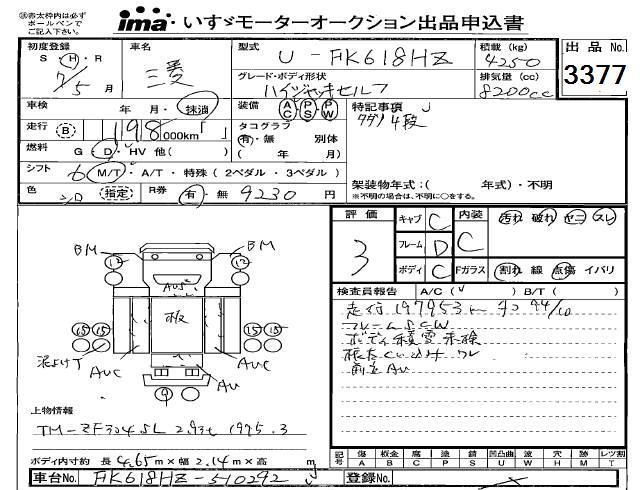 ㊟赤太枠内は必ず
ボールペンで
ご記入下さい。
ima いすゞモーターオークション出品申込書
初度登録 S・H・R 7/5月
車名 三菱
型式 U-FK618HZ
積載 (kg) 4250
グレード・ボディ形状 ハイジャッキセルフ
排気量 (cc) 8200cc
出品No.
3377
車検 年 月・抹消
装備 AC PS PW
特記事項
走行 B 198,000km「 」
タコグラフ 有・無 別体
( 年 月)
燃料 G・D・HV 他( )
シフト 6 M/T・A/T・特殊 (2ペダル・3ペダル)
架装物年式:( 年式)・不明
※不明の場合は、不明に○をする。
色 (指定) R券 有・無 9230 円
評価 3
キャブ C 内装 C 汚れ 破れ ヤニ スレ
フレーム D
ボディ C Fガラス 割れ 線 点傷 イバリ
検査員報告 A/C( ) B/T( )
走行197953km
フレームSCW
ボディ積雪未検
前立AU
BM BM
12 12
AUS
板
15 15 15 15
泥よけT
AUC AUC
AU
9
上物情報
TM-ZF304SL 2.93t 1975.3
ボディ内寸約 長 4.65m×幅 2.14m×高 m
記号 傷A 板金B 腐C 塗P 錆S 凹凸曲U 波W 穴H 跡M レツ割T
車台No. FK618HZ-510292
登録No.